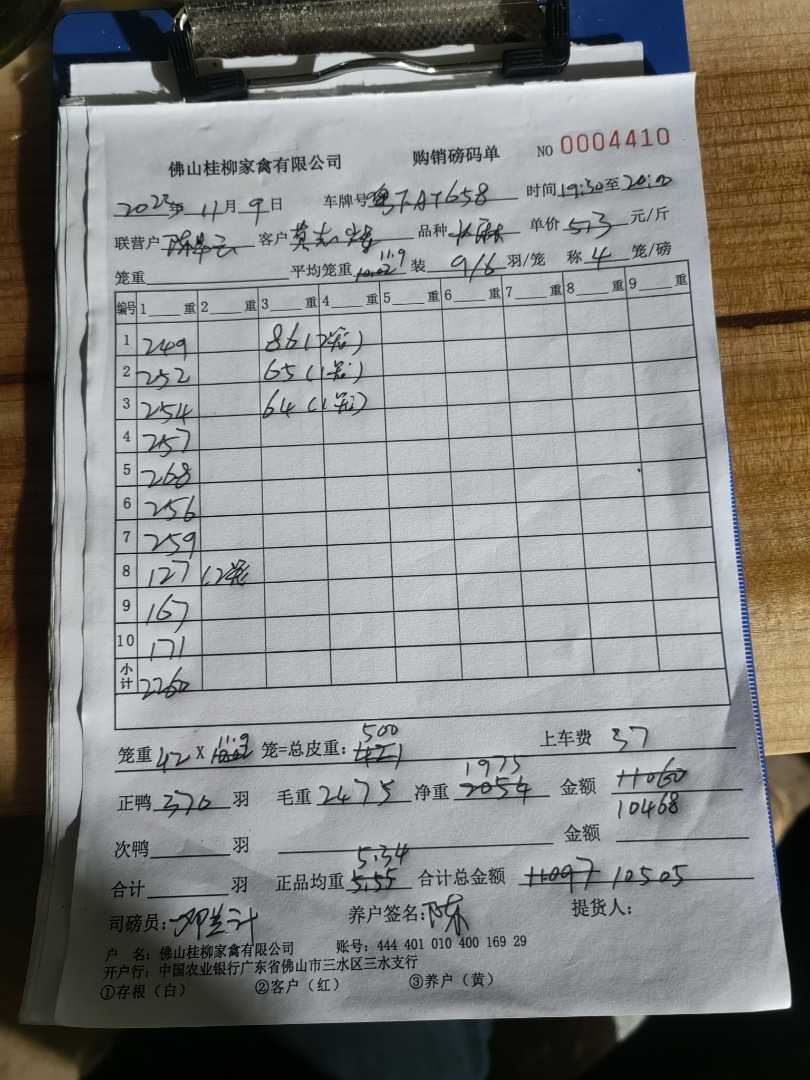 佛山桂柳家禽有限公司 购销磅码单 NO 0004410
2023年 11月 9日 车牌号 粤TAY658 时间 19:30至20:00
联营户 客户 品种 单价 5.3 元/斤
笼重 平均笼重 11.9 装 9/6 羽/笼 称 4 笼/磅
编号 1 重 2 重 3 重 4 重 5 重 6 重 7 重 8 重 9 重
1 249 86 (2笼)
2 252 65 (1笼)
3 254 64 (1笼)
4 257
5 268
6 256
7 259
8 127 (2笼
9 167
10 171
小计 2260
笼重 42 X 11.9 笼=总皮重: 500 421 上车费 37
正鸭 370 羽 毛重 2475 净重 1975 2054 金额 11060 10468
次鸭 羽 金额
合计 羽 正品均重 5.34 5.55 合计总金额 11097 10505
司磅员: 养户签名: 陈 提货人:
户 名: 佛山桂柳家禽有限公司 账号: 444 401 010 400 169 29
开户行: 中国农业银行广东省佛山市三水区三水支行
①存根(白) ②客户(红) ③养户(黄)